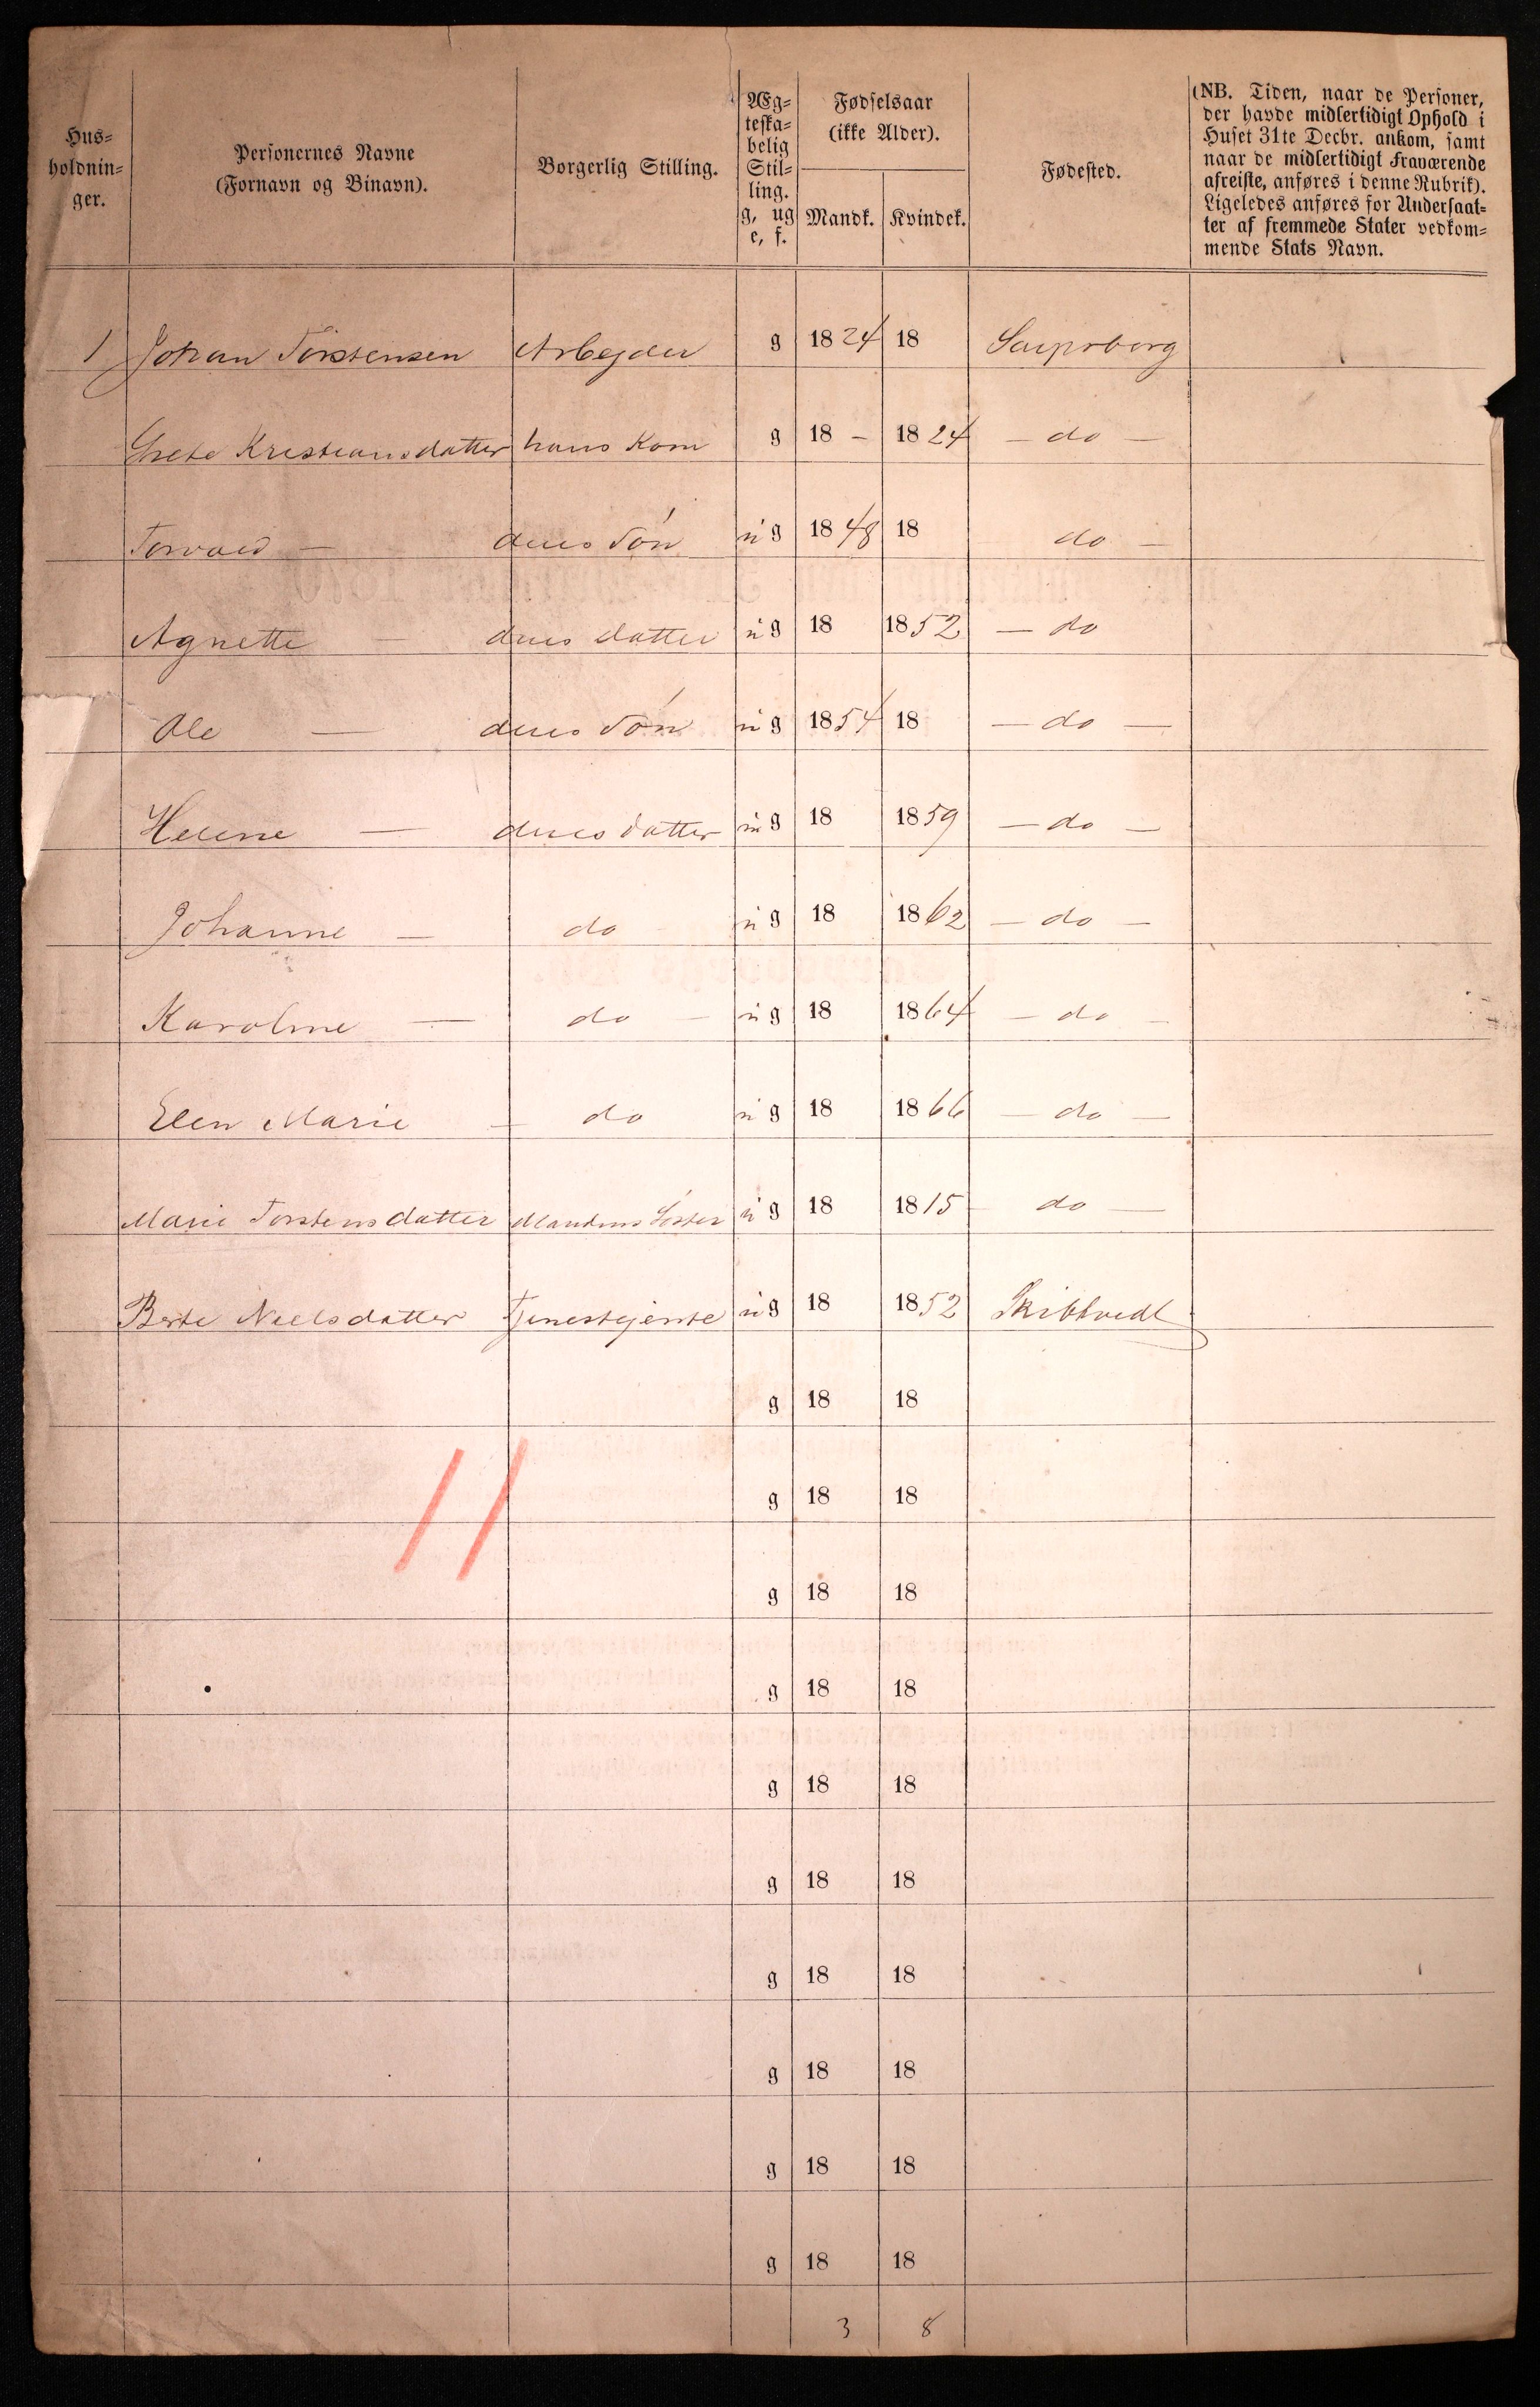 Hus-
holdnin-
ger.
Personernes Navne
(Fornavn og Binavn).
Borgerlig Stilling.
Æg-
teska-
belig
Stil-
ling.
g, ug
e, f.
Fødselsaar
(ikke Alder).
Mandk. Kvindek.
Fødested.
(NB. Tiden, naar de Personer,
der havde midlertidigt Ophold i
Huset 31te Decbr. ankom, samt
naar de midlertidigt Fraværende
afreiste, anføres i denne Rubrik).
Ligeledes anføres for Undersaat-
ter af fremmede Stater vedkom-
mende Stats Navn.
1 Johan Torstensen Arbejder g 1824 18 Sarpsborg
Grete Kristiansdatter hans Kone g 18 – 1824 – do –
Torvald – deres Søn ug 1848 18 do –
Agnette – deres datter ug 18 1852 – do
Ole – deres Søn ug 1854 18 – do –
Helene – deres datter ug 18 1859 – do –
Johanne – do ug 18 1862 – do –
Karoline – do – ug 18 1864 – do –
Elen Marie – do ug 18 1866 – do –
Marie Torstensdatter Mandens Søster ug 18 1815 do –
Berte Nielsdatter Tjenestejente ug 18 1852 Skibtvedt
g 18 18
11
g 18 18
g 18 18
g 18 18
g 18 18
g 18 18
g 18 18
g 18 18
g 18 18
g 18 18
3 8